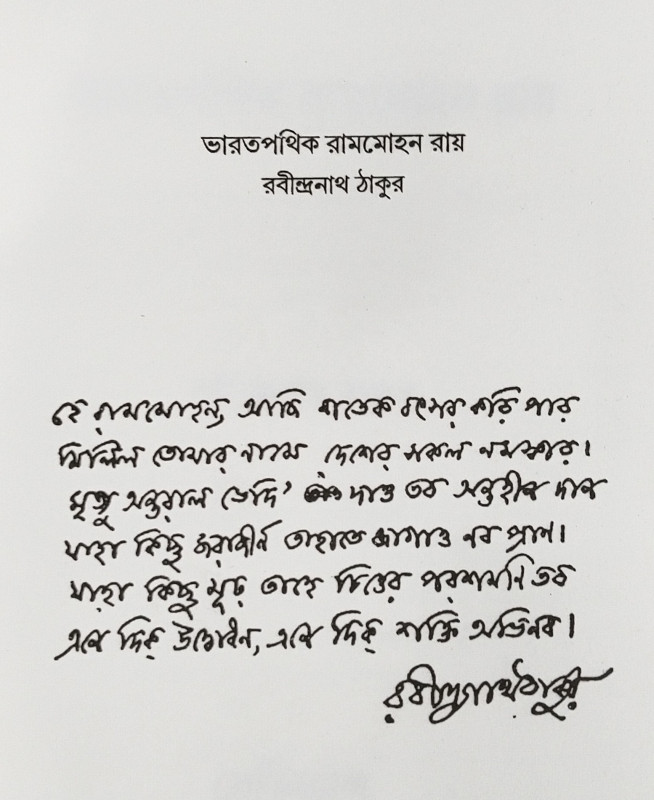 ভারতপথিক রামমোহন রায়
রবীন্দ্রনাথ ঠাকুর
হে রামমোহন, আজি শতেক বৎসর করি পার
মিলিল তোমার নামে দেশের সকল নমস্কার।
মৃত্যু অন্তরাল ভেদি' দাও তব অন্তহীন দান
যাহা কিছু জরাজীর্ণ তাহাতে জাগাও নব প্রাণ।
যাহা কিছু মূঢ় তাহে চিত্তের পরশমণি তব
এনে দিক্ উদ্বোধন, এনে দিক্ শক্তি অভিনব।
রবীন্দ্রনাথ ঠাকুর